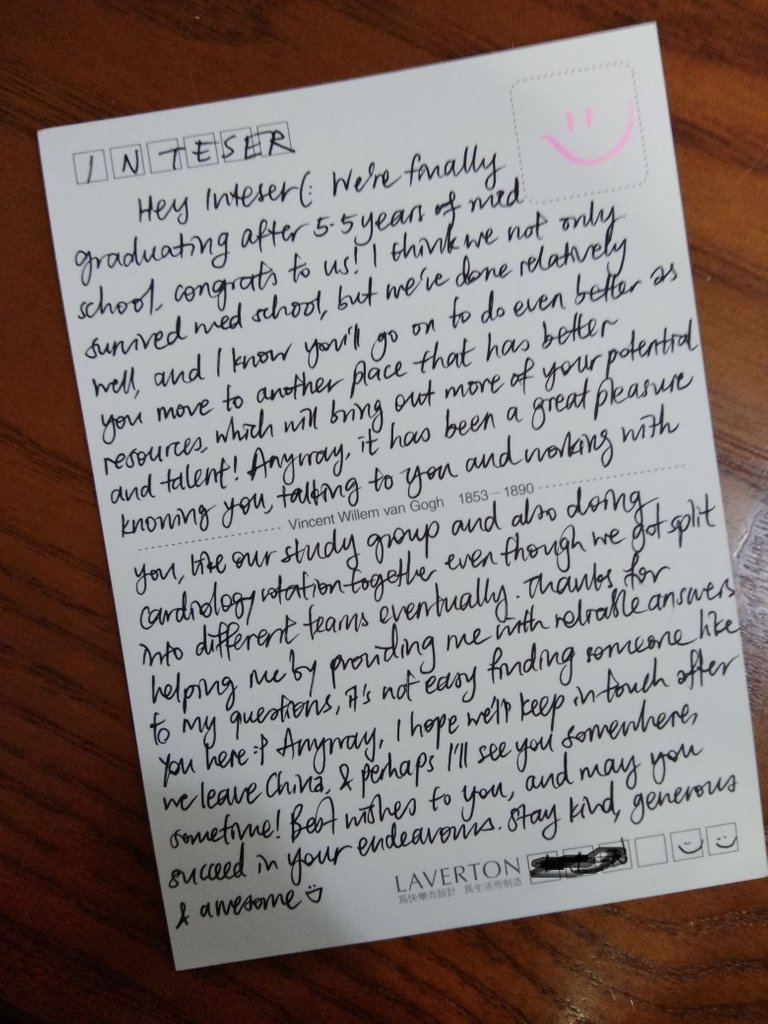 INTESER
Hey Inteser(: We're finally
graduating after 5.5 years of med
school, congrats to us! I think we not only
survived med school, but we're done relatively
well, and I know you'll go on to do even better as
you move to another place that has better
resources, which will bring out more of your potential
and talent! Anyway, it has been a great pleasure
knowing you, talking to you and working with
Vincent Willem van Gogh 1853–1890
you, like our study group and also doing
cardiology rotation together even though we got split
into different teams eventually. Thanks for
helping me by providing me with reliable answers
to my questions, it's not easy finding someone like
you here :P Anyway, I hope we'll keep in touch after
we leave China, & perhaps I'll see you somewhere,
sometime! Best wishes to you, and may you
succeed in your endeavours. Stay kind, generous
& awesome
LAVERTON
爲快樂而設計 爲生活而制造